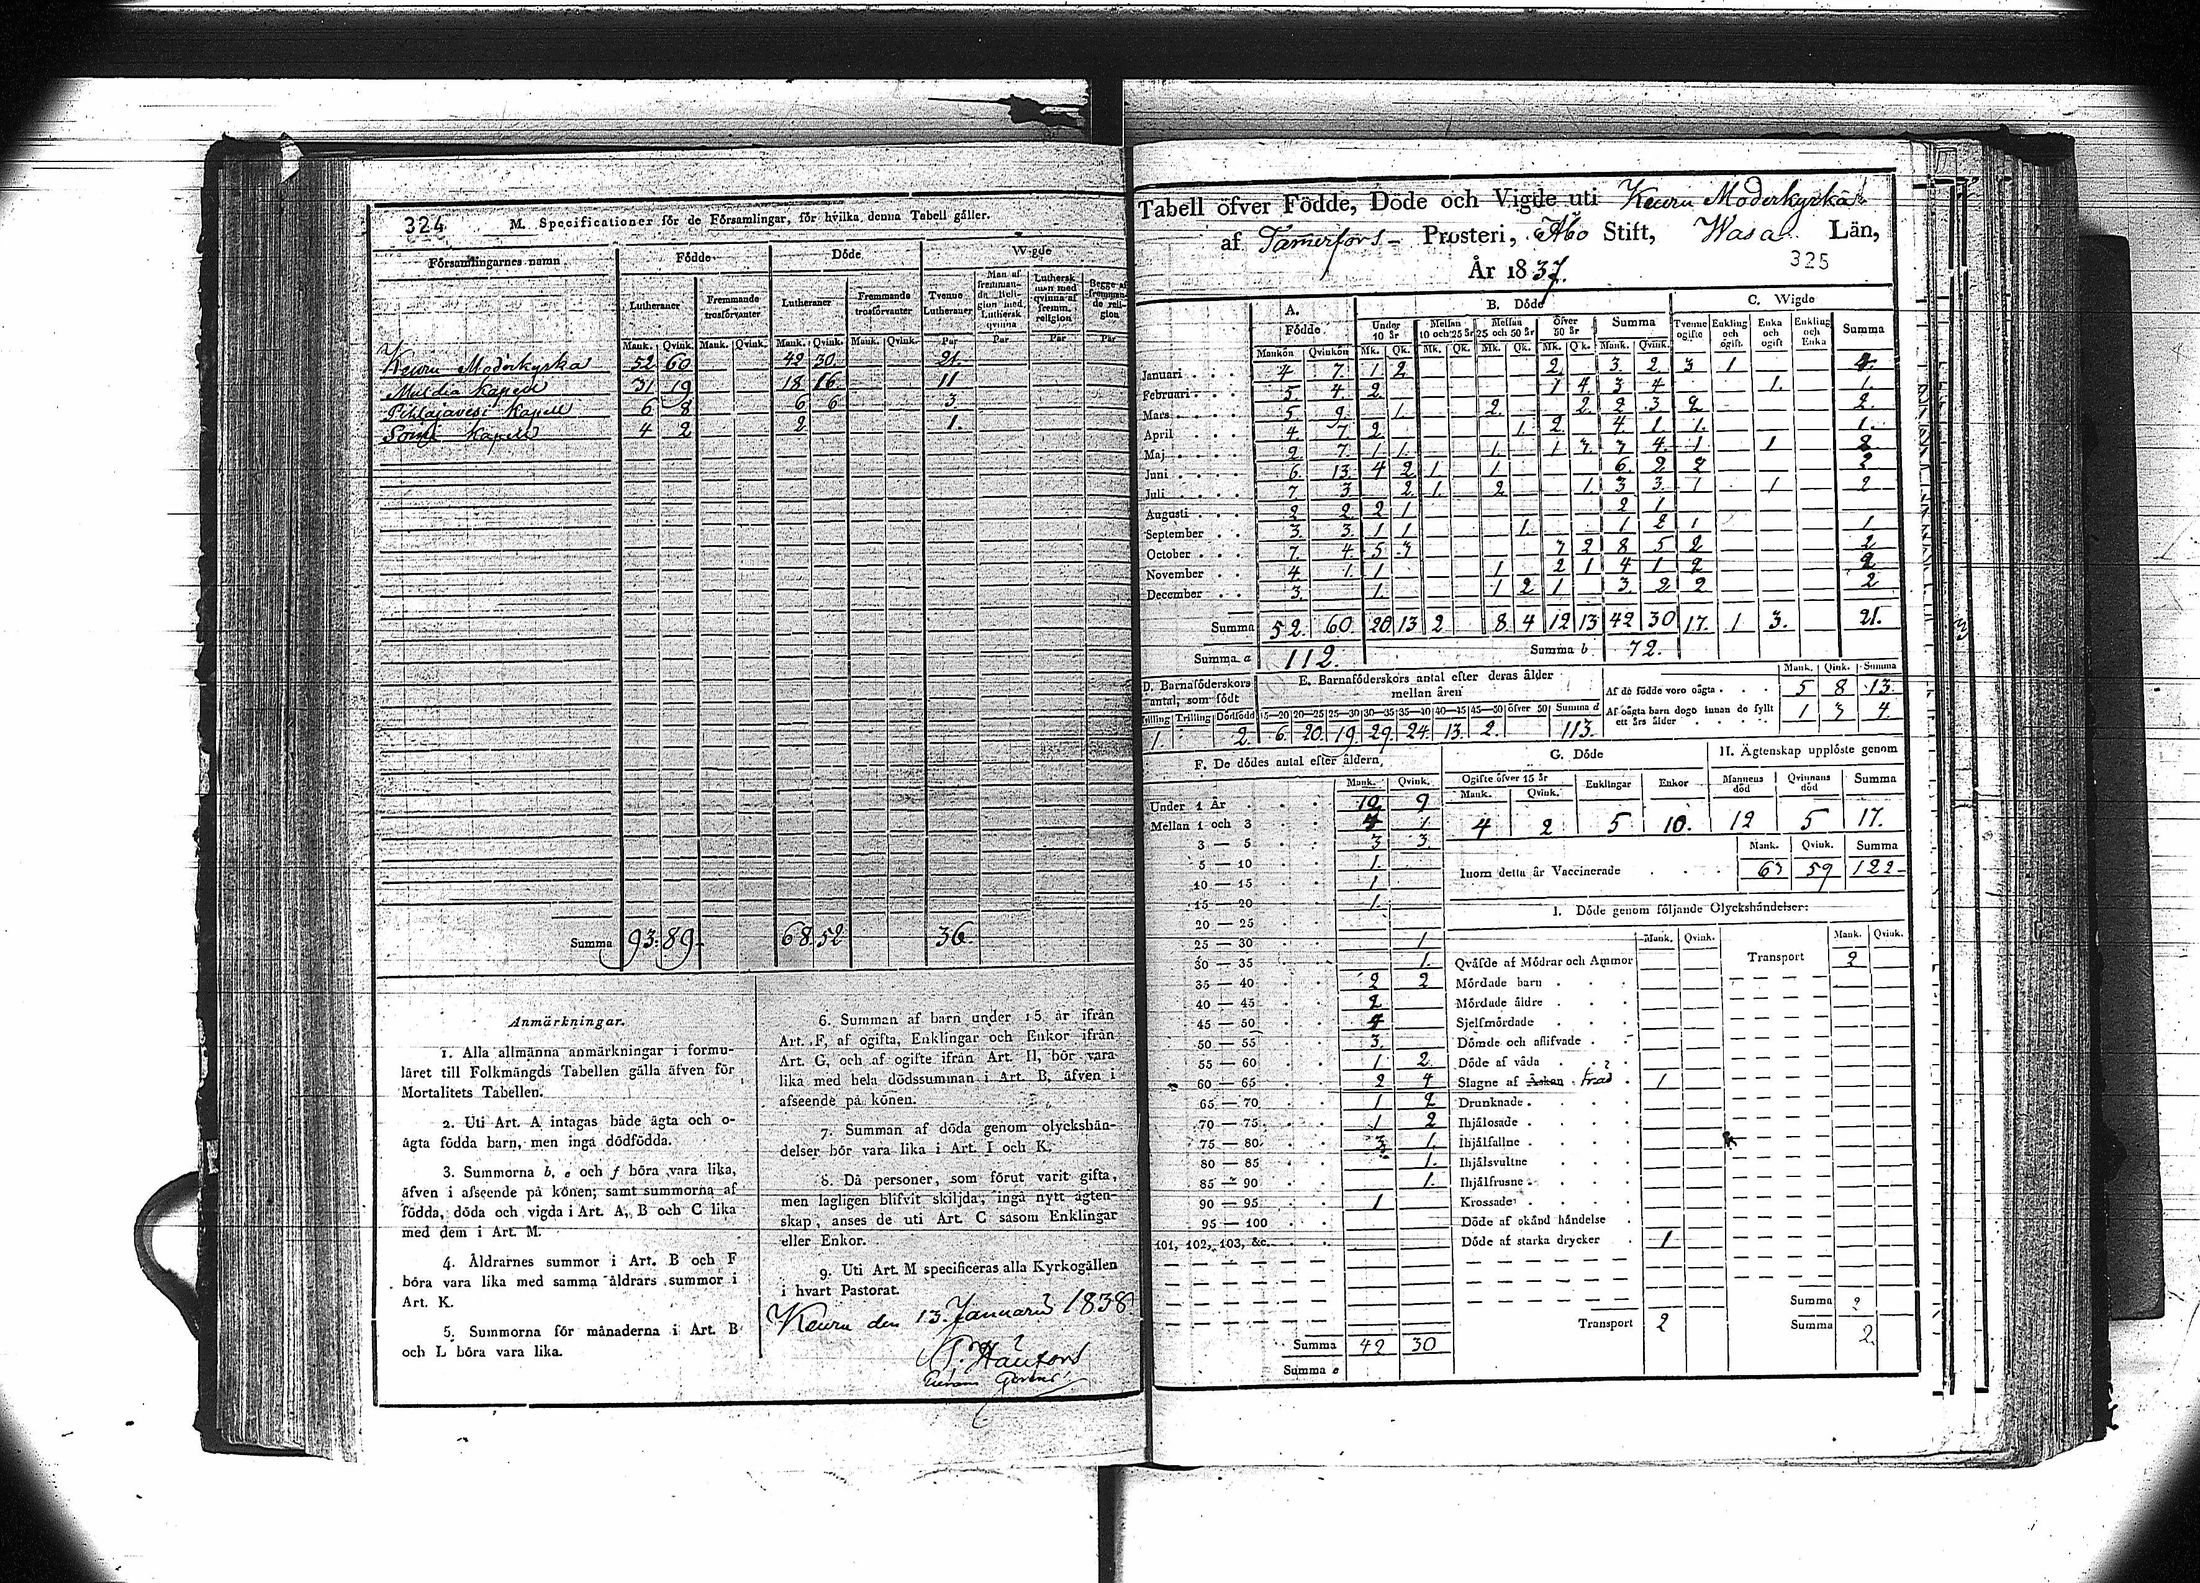 324
M. Specificationer för de Församlingar, för hvilka denna Tabell gäller.
Församlingarnes namn Födde Döde Wigde
Lutheraner Fremmande trosförvanter Lutheraner Fremmande trosförvanter Tvenne Lutheraner Man af fremmande Religion med Luthersk qvinna Luthersk man med qvinna af fremm. religion Begge af fremmande religion
Mank. Qvink. Mank. Qvink. Mank. Qvink. Mank. Qvink. Par Par Par Par
Keuru Moderkyrka 52 60 42 30 21
Multia Kapell 31 19 18 16 11
Pihlajavesi Kapell 6 8 6 6 3
Kapell 4 2 2 1.
Summa 93. 89 68. 52 36.
Anmärkningar.
1. Alla allmänna anmärkningar i formu-
läret till Folkmängds Tabellen gälla äfven för
Mortalitets Tabellen.
2. Uti Art. A intagas både ägta och o-
ägta födda barn, men inga dödfödda.
3. Summorna b, e och f böra vara lika,
äfven i afseende på könen; samt summorna af
födda, döda och vigda i Art. A, B och C lika
med dem i Art. M.
4. Åldrarnes summor i Art. B och F
böra vara lika med samma åldrars summor i
Art. K.
5. Summorna för månaderna i Art. B
och L böra vara lika.
6. Summan af barn under 15 år ifrån
Art. F, af ogifta, Enklingar och Enkor ifrån
Art. G, och af ogifte ifrån Art. H, bör vara
lika med hela dödssumman i Art. B, äfven i
afseende på könen.
7. Summan af döda genom olyckshän-
delser bör vara lika i Art. I och K.
8. Då personer, som förut varit gifta,
men lagligen blifvit skiljda, ingå nytt ägten-
skap, anses de uti Art. C såsom Enklingar
eller Enkor.
9. Uti Art. M specificeras alla Kyrkogällen
i hvart Pastorat.
Keuru den 13. Januarii 1838
Tabell öfver Födde, Döde och Vigde uti Keuru Moderkyrka
af Tamerfors Prosteri, Åbo Stift, Wasa Län,
År 1837.
325
A. Födde B. Döde C. Wigde
Under 10 år Mellan 10 och 25 år Mellan 25 och 50 år Öfver 50 år Summa Tvenne ogifte Enkling och ogift. Enka och ogift Enkling och Enka Summa
Mankön Qvinkön Mk. Qk. Mk. Qk. Mk. Qk. Mk. Qk. Mank. Qvink.
Januari 4 7 1 2 2 3 2 3 1 4.
Februari 5 4 2 1 4 3 4 1. 1.
Mars 5 9 1 2 2 2 3 2 2.
April 4 7 2 1 2 4 1 1. 1.
Maj 2 7 1 1 1 1 3 3 4 1 1 2
Juni 6 13 4 2 1 1 6 2 2 2
Juli 7 3 2 1. 2 1. 3 3 1 1 2
Augusti 2 2 2 1 2 1
September 3 3 1 1 1. 1 2 1 1
October 7 4 5 3 3 2 8 5 2 2
November 4 1 1 1 2 1 4 1 2 2
December 3. 1 1 2 1 3 2 2 2
Summa 52. 60 20 13 2 8 4 12 13 42 30 17. 1 3. 21.
Summa a 112. Summa b 72.
D. Barnaföderskors antal, som födt
Tvilling Trilling Dödfödd
1. 2
E. Barnaföderskors antal efter deras ålder mellan åren
15—20 20—25 25—30 30—35 35—40 40—45 45—50 öfver 50 Summa d
6. 20 19 29 24 13. 2. 113.
Mank. Qink. Summa
Af de födde voro oägta 5 8 13.
Af oägta barn dogo innan de fyllt ett års ålder 1 3 4.
F. De dödes antal efter åldern,
Mank. Qvink.
Under 1 År 10 9
Mellan 1 och 3 1
3 — 5 3 3.
5 — 10 1.
10 — 15 1
15 — 20 1.
20 — 25
25 — 30 1
30 — 35 1.
35 — 40 2 2
40 — 45 2
45 — 50 4
50 — 55 3.
55 — 60 1 2
60 — 65 2 4
65 — 70 1 2
70 — 75 1 2
75 — 80 3 1.
80 — 85 1.
85 — 90 1.
90 — 95 1
95 — 100
101, 102, 103, &c.
Summa 42 30
Summa e
G. Döde
Ogifte öfver 15 år Enklingar Enkor
Mank. Qvink.
4 2 5 10.
H. Ägtenskap upplöste genom
Mannens död Qvinnans död Summa
12 5 17.
Mank. Qvink. Summa
Inom detta år Vaccinerade 63 59 122
I. Döde genom följande Olyckshändelser:
Mank. Qvink. Mank. Qvink.
Qväfde af Mödrar och Ammor Transport 2
Mördade barn
Mördade äldre
Sjelfmördade
Dömde och aflifvade
Döde af våda
Slagne af Åskan träd 1
Drunknade
Ihjälosade
Ihjälfallne
Ihjälsvultne
Ihjälfrusne
Krossade
Döde af okänd händelse
Döde af starka drycker 1
Summa 2
Transport 2 Summa 2